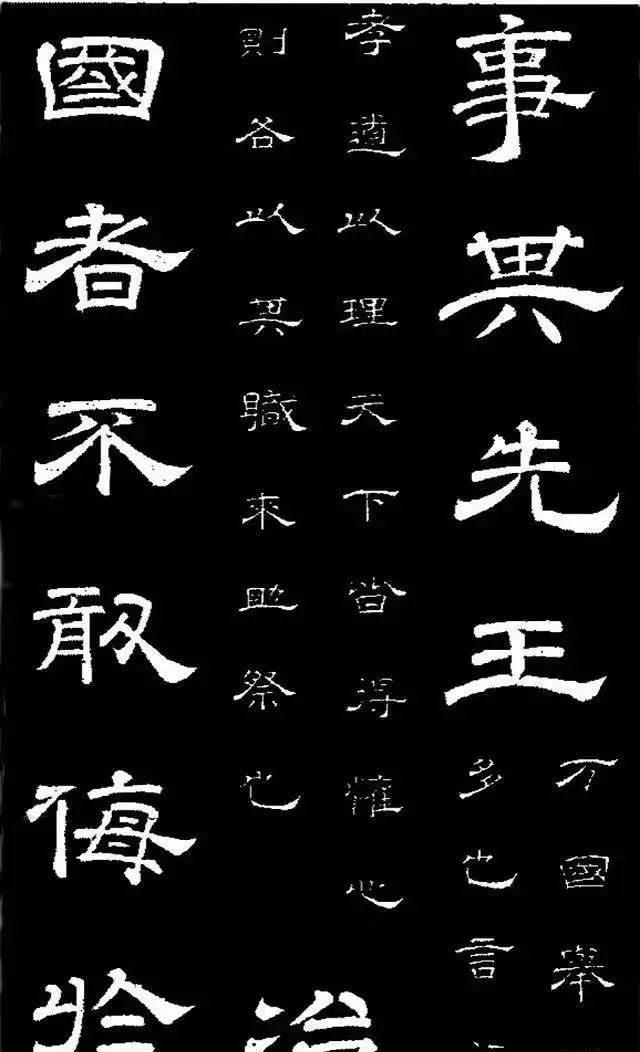 事其先王
万國舉
多也言
孝道以理天下皆得懽心
則各以其職來助祭也
治
國者不敢侮於